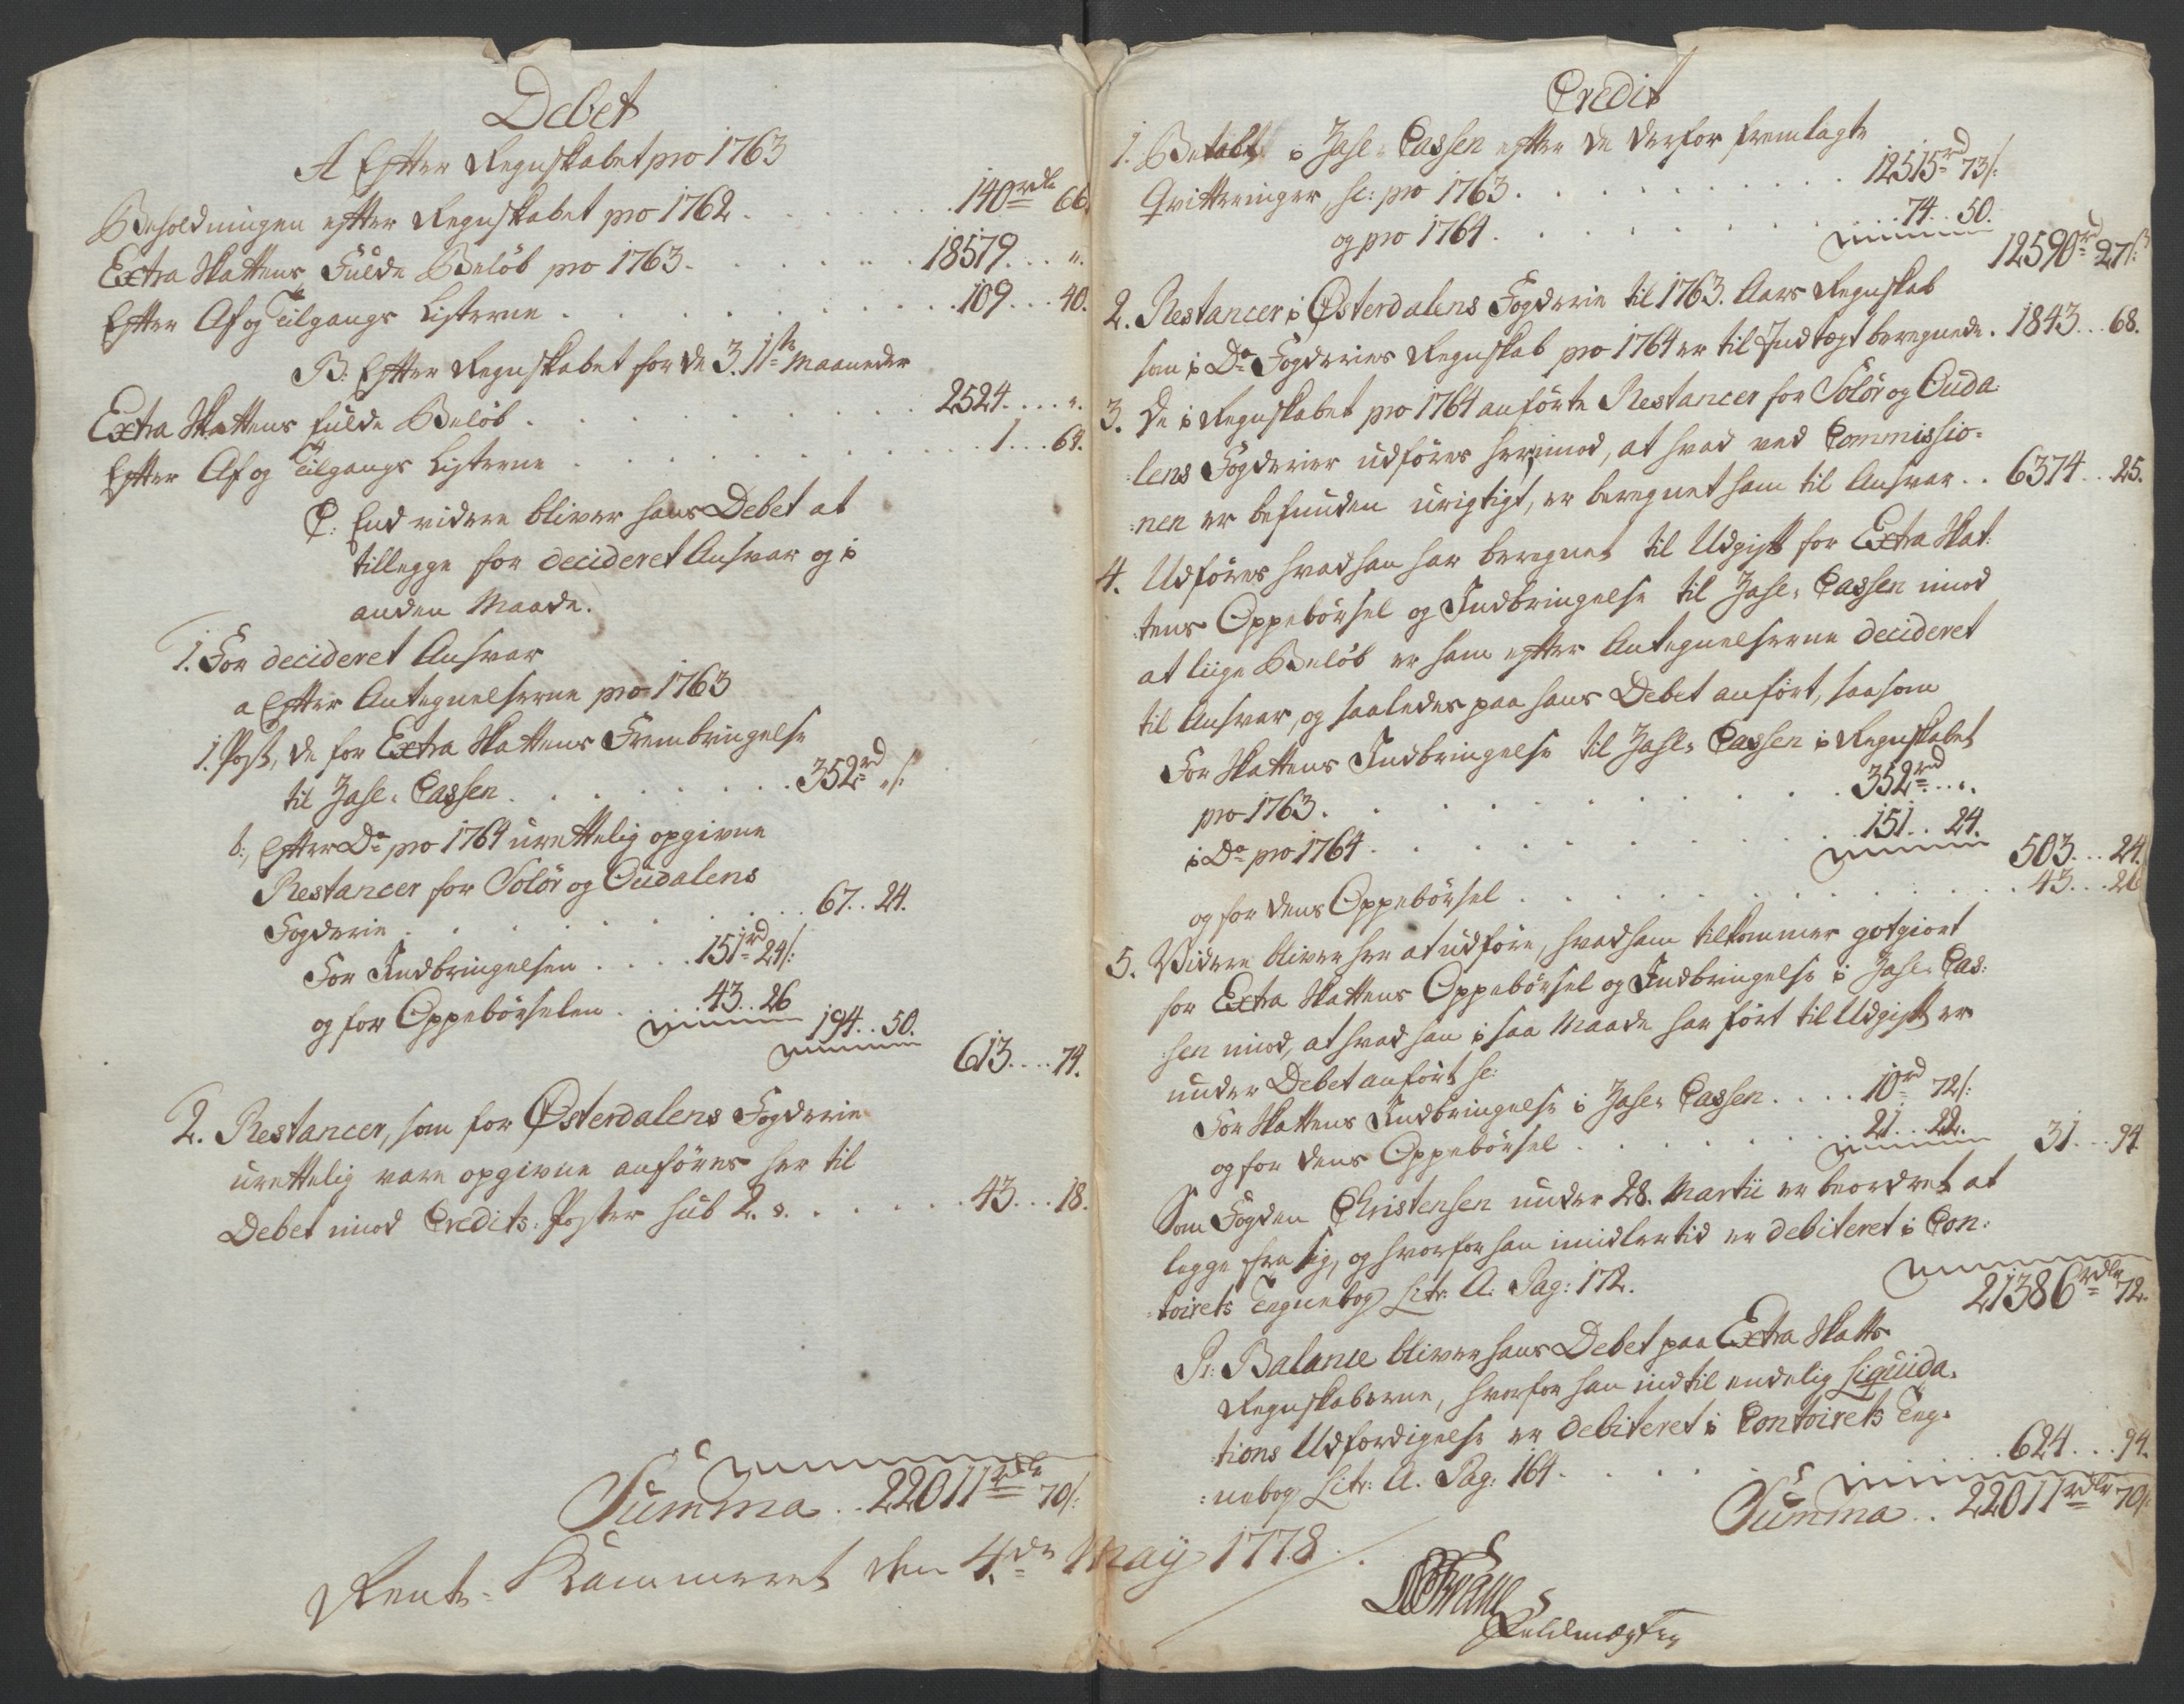 Debet
A Efter Regnskabet pro 1763
Beholdningen efter Regnskabet pro 1762 . . . . . . . 140 rdlr 66.
Extra Skattens Fulde Beløb pro 1763 . . . . . . 18579 . . . ".
Efter Af og Tilgangs Listerne . . . . . . . . . . 109 . . . 40.
B: Efter Regnskabet for de 3. 1ste Maaneder
Extra Skattens fulde Beløb . . . . . . . . . . 2524 . . . . ".
Efter Af og Tilgangs Listerne . . . . . . . . . . 1 . . . 64.
C: End videre bliver hans Debet at
tillegge for decideret Ansvar og i
anden Maade.
1. For decideret Ansvar
a Efter Antegnelserne pro 1763
1. Post, de for Extra Skattens Frembringelse
til Zahl-Cassen . . . . . . . . . 352 rd " s:
b:, Efter Do pro 1764 urettelig opgivne
Restancer for Solør og Oudalens
Fogderie . . . . . . . . 67 . . 24.
For Indbringelsen . . . . 151 rd 24 s:
og for Oppebørselen . . . . 43 . . 26
194 . . 50.
613 . . . . 74.
2. Restancer, som for Østerdalens Fogderie
urettelig vare opgivne anføres her til
Debet imod Credits-Poster sub 2. . . . . . . . 43 . . . 18.
Summa . . 22011 rdlr 70 s:
Rente-Kammeret den 4de May 1778.
Credit
1. Betalt i Zahl-Cassen efter de derfor fremlagte
Qvitteringer, sc: pro 1763 . . . . . . . . . . . 12515 rd 73 s:
og pro 1764 . . . . . . . . . . . 74 . . 50.
12590 rd 27 s:
2. Restancer i Østerdalens Fogderie til 1763. Aars Regnskab
som i Do Fogderies Regnskab pro 1764 er til Indtægt beregnede . 1843 . . . 68.
3. De i Regnskabet pro 1764 anførte Restancer for Solør og Ouda
:lens Fogderier udføres herimod, at hvad ved Commissio-
:nen er befunden urigtigt, er beregnet ham til Ansvar . . 6374 . . 25.
4. Udføres hvad han har beregnet til Udgift for Extra Skat:
:tens Oppebørsel og Indbringelse til Zahl-Cassen imod
at liige Beløb er ham efter Antegnelserne decideret
til Ansvar, og saaledes paa hans Debet anført, saasom
For Skattens Indbringelse til Zahl-Cassen i Regnskabet
pro 1763 . . . . . . . . . . . 352 rd . . ".
i Do pro 1764 . . . . . . . . . . 151 . . 24.
503 . . . 24.
og for dens Oppebørsel . . . . . . . . . . . 43 . . . 26
5. Videre bliver her at udføre, hvad ham tilkommer gotgiort
for Extra Skattens Oppebørsel og Indbringelse i Zahl-Cas:
:sen imod, at hvad han i saa Maade har ført til Udgift er
under Debet anført sc:
For Skattens Indbringelse i Zahl-Cassen . . . . 10 rd 72 s:
og for dens Oppebørsel . . . . . . . 21 . . 22.
31 . . . 94.
Som Fogden Christensen under 28. Martii er beordret at
legge fra sig, og hvorfor han imidlertid er debiteret i Con:
:toirets Tegnebog Litr: A. Pag: 172.
21386 rdlr 72.
Pr: Balance bliver hans Debet paa Extra Skatts
Regnskaberne, hvorfor han indtil endelig Liqvida-
:tions Udfærdigelse er debiteret i Contoirets Teg-
:nebog Litr: A. Pag: 164 . . . . . . . . 624 . . . 94.
Summa . . 22011 rdlr 70 s: